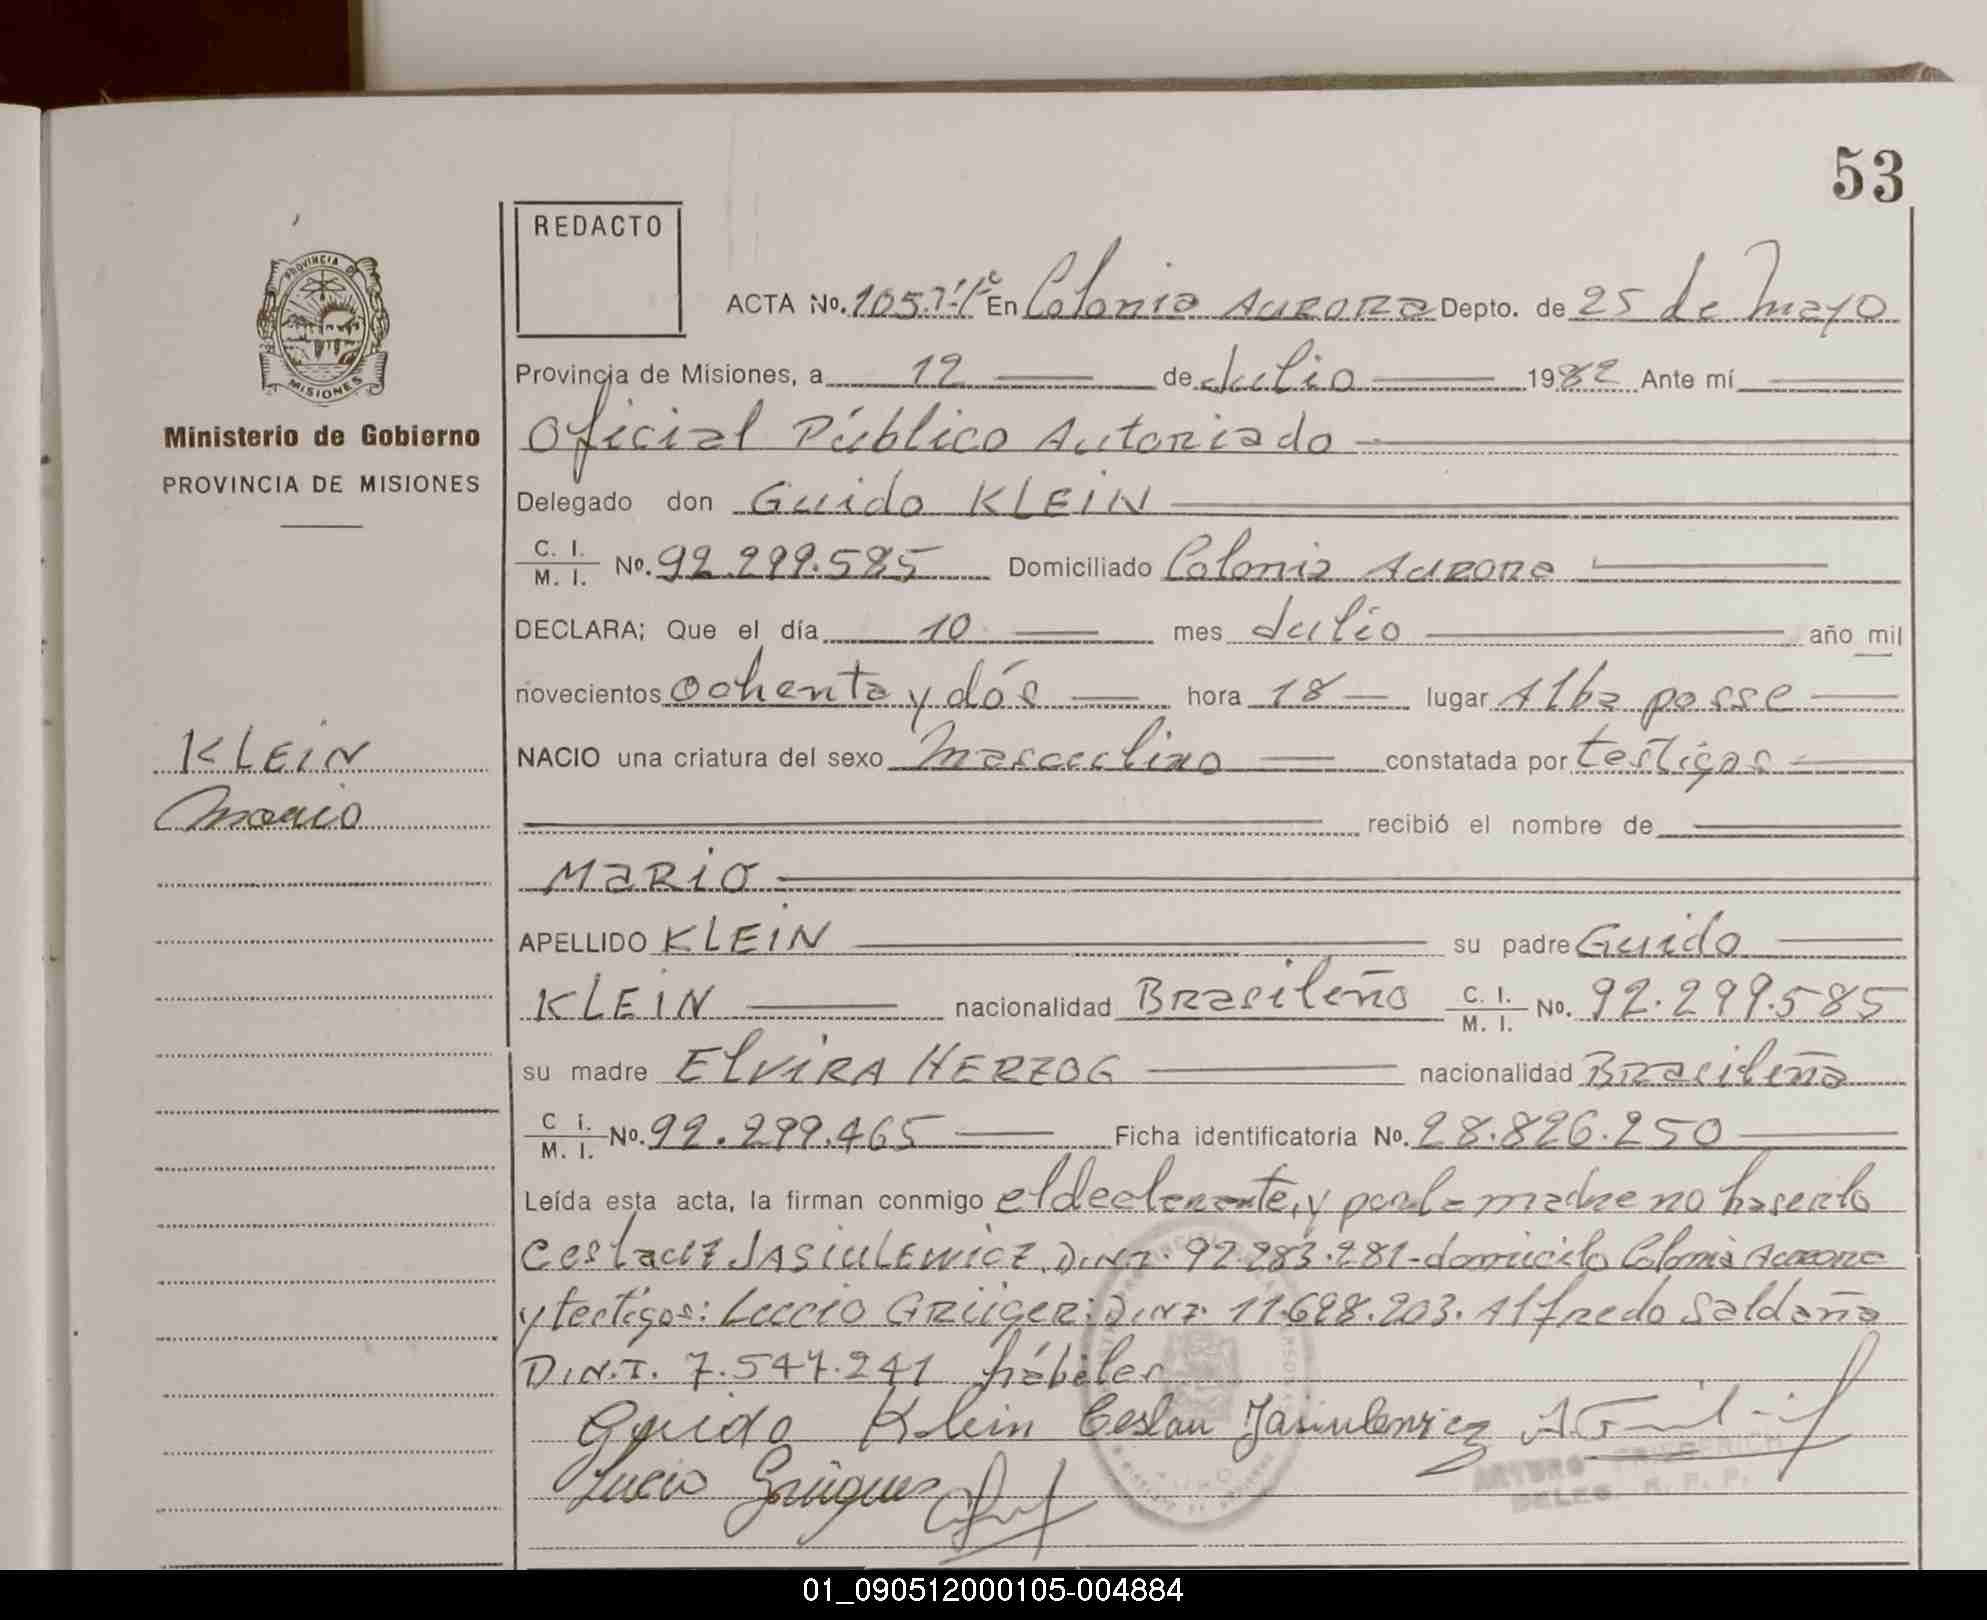 53
REDACTO
PROVINCIA DE
MISIONES
Ministerio de Gobierno
PROVINCIA DE MISIONES
KLEIN
Mario
ACTA No. 1057 En Colonia AURORA Depto. de 25 de Mayo
Provincia de Misiones, a 12 de Julio 1982 Ante mí
Oficial Público Autoriado
Delegado don Guido KLEIN
C. I. / M. I. No. 92.299.585 Domiciliado Colonia AURORA
DECLARA; Que el día 10 mes Julio año mil
novecientos ochenta y dós hora 18 lugar Alba posse
NACIO una criatura del sexo Masculino constatada por testigos
recibió el nombre de
MARIO
APELLIDO KLEIN su padre Guido
KLEIN nacionalidad Brasileño C. I. / M. I. No. 92.299.585
su madre ELVIRA HERZOG nacionalidad Brasileña
C I. / M. I. No. 92.299.465 Ficha identificatoria No. 28.826.250
Leída esta acta, la firman conmigo el declarante, y por la madre no haserlo
Ceslauz JASIULEWICZ. D.N.I. 92.283.281-domicilo Colonia Aurora
y testigos: Lucio GRÜGER: D.N.I. 11.698.203. Alfredo Saldaña
D.N.I. 7.547.241 hábiles
Guido Klein Ceslau Jasiulewicz
Lucio Grüguer
ARTURO FRIEDERICH
DELEG. R. P. P.
01_090512000105-004884